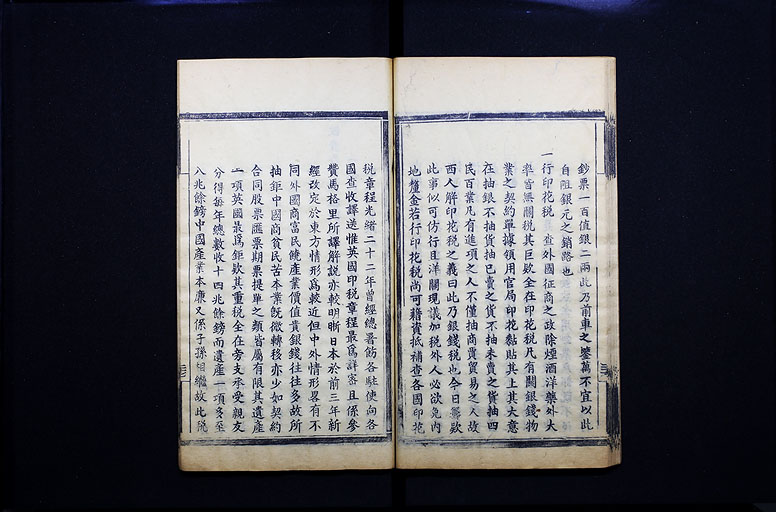 鈔票一百值銀二兩此乃前車之鑒萬不宜以此
自阻銀元之銷路也
一行印花稅查外國征商之政除煙酒洋藥外大
率皆無關稅其巨欵全在印花稅凡有關銀錢物
業之契約單據領用官局印花黏貼其上其大意
在抽銀不抽貨抽已賣之貨不抽未賣之貨抽四
民百業凡有進項之人不僅抽商賈貿易之人故
西人解印花稅之義曰此乃銀錢稅也今日籌欵
此事似可仿行且洋關現議加稅外人必欲免內
地釐金若行印花稅尚可藉資抵補查各國印花
稅章程光緒二十二年曾經總署飭各駐使向各
國查收譯送惟英國印稅章程最爲詳審且係參
贊馬格里所譯解說亦較明晰日本於前三年新
經改定於東方情形爲較近但中外情形畧有不
同外國商富民饒產業價值貴銀錢往往多故所
抽鉅中國商貧民苦本業旣微轉移亦少如契約
合同股票匯票期票提單之類皆屬有限其遺產
一項英國最爲鉅欵其重稅全在旁支承受親友
分得每年總數收十四兆餘鎊而遺產一項多至
八兆餘鎊中國產業本廉又係子孫相繼故此稅